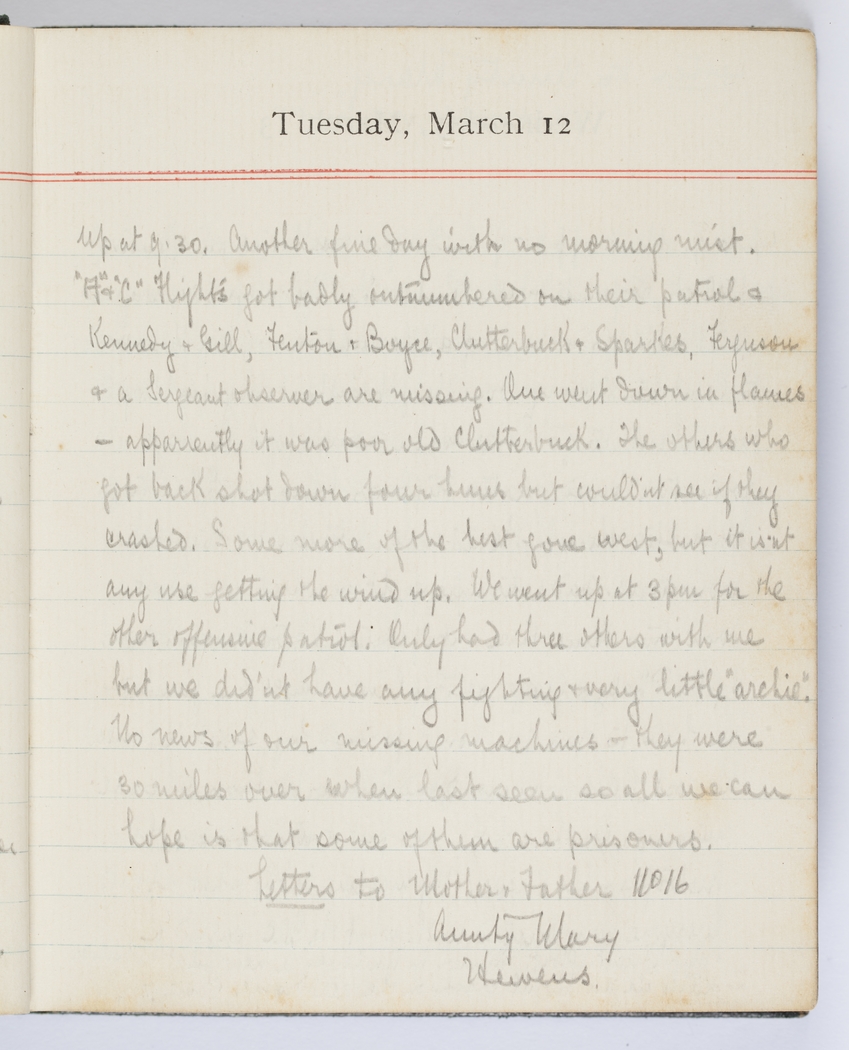 Tuesday, March 12
Up at 9.30. Another fine day with no morning mist.
"A" & "C" Flights got badly outnumbered on their patrol &
Kennedy & Gill, Fenton & Boyce, Clutterbuck & Sparkes, Ferguson
& a Sergeant observer are missing. One went down in flames
– apparrently it was poor old Clutterbuck. The others who
got back shot down four huns but could'nt see if they
crashed. Some more of the best gone west, but it is'nt
any use getting the wind up. We went up at 3 pm for the
other offensive patrol. Only had three others with me
but we did'nt have any fighting & very little "archie".
No news of our missing machines – they were
30 miles over when last seen so all we can
hope is that some of them are prisoners.
Letters to Mother & Father No 16
Aunty Mary
Hewens.